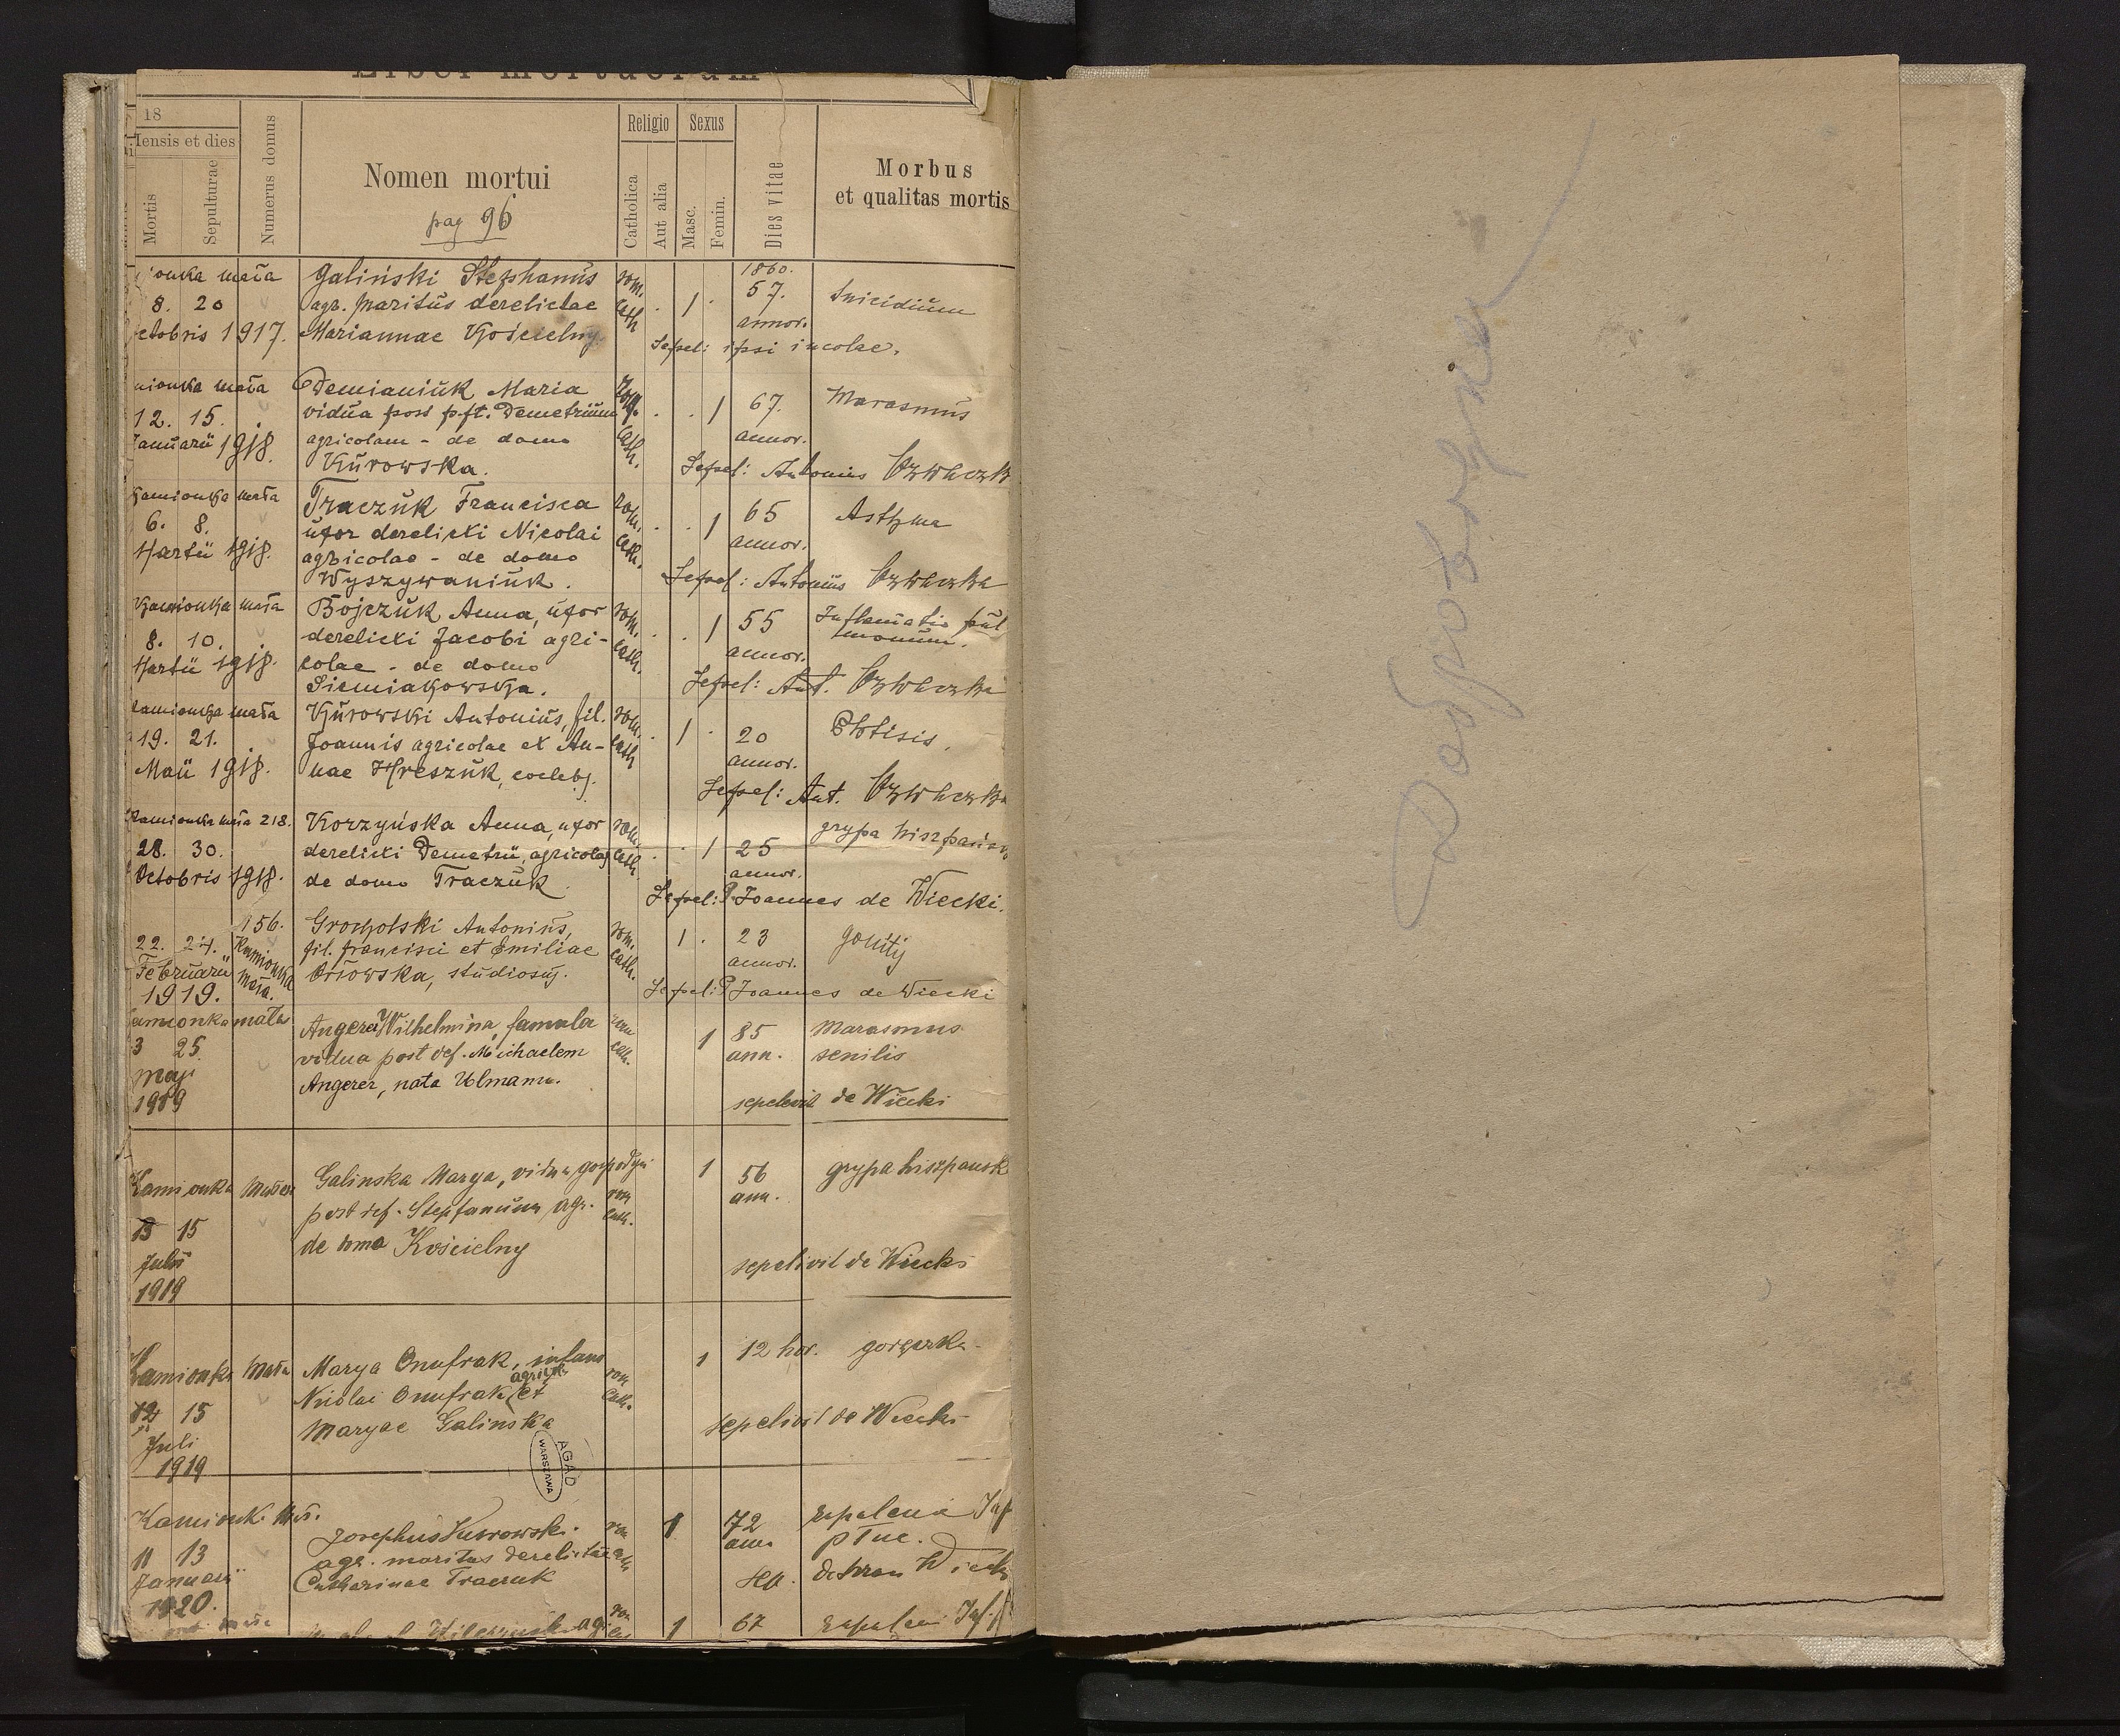 Liber mortuorum
18
Mensis et dies
Mortis
Sepulturae
Numerus domus
Nomen mortui
pag 96
Religio
Catholica
Aut alia
Sexus
Masc.
Femin.
Dies vitae
Morbus
et qualitas mortis
ionka mała Galiński Stephanus rom. 1860.
8. 20 agr. maritus derelictae cath 1 57. Suicidium
ctobris 1917. Mariannae Kościelny annor.
Sepel: ipsi incolae.
mionka mała Demianiuk Maria rom.
12. 15. vidua post pft. Demetrium 1 67. Marasmus
Januarii 1918. agricolam - de domo cath. annor.
Kurowska. Sepel: Antonius
Kamionka mała Traczuk Francisca rom.
6. 8. uxor derelicti Nicolai 1 65 Asthma
Martii 1918. agricolae - de domo cath. annor.
Wyszywaniuk. Sepel: Antonius
Kamionka mała Bojczuk Anna, uxor rom. Inflamatio pul
8. 10. derelicti Jacobi agri- 1 55 monum.
Martii 1918. colae - de domo cath. annor.
Siemiakowska. Sepel: Ant.
Kamionka mała Kurowski Antonius, fil. rom.
19. 21. Joannis agricolae et An- cath 1 20 Phtisis.
Maii 1918. nae Hreszuk, coelebs. annor.
Sepel: Ant.
Kamionka mała 218. Korzyńska Anna, uxor rom. grypa hiszpańs
28. 30. derelicti Demetrii, agricolae cath 1 25
Octobris 1918. de domo Traczuk annor.
Sepel: P. Joannes de Wiecki.
156. Grocholski Antonius, rom.
22. 24. Kamionka fil. Francisci et Emiliae 1 23
Februarii mała. Orłowska, studiosus. cath. annor.
1919. Sepel: P. Joannes de Wiecki
Kamionka mała Angerer Wilhelmina, famula rom 1 85 Marasmus
3 25. vidua post def. Michaelem cath. ann. senilis
maji Angerer, nata Ulmann.
1919 sepelivit de Wiecki
Kamionka Mała Galinska Marya, vidua gospodyni 1 56 grypa hiszpansk
post def. Stepfanum agr. rom cath. ann.
15 15 de domo Kościelny
Julii sepelivit de Wiecki
1919
Kamionka Mała Marya Onufrak, infans 1 12 hor. gorączka
agricolae
Nicolai Onufrak et rom cath.
12 15 Maryae Galinska sepelivit de Wiecki
Juli
1919
AGAD
WARSZAWA
Kamionk. Mał.
Josephus Kurowski. rom 1 72 zapalenie
11 13 agr. maritus derelictae cath ann. płuc.
Januarii Catharinae Traczuk sep. Wiecki
1920.
agr 1 67
Доброжка